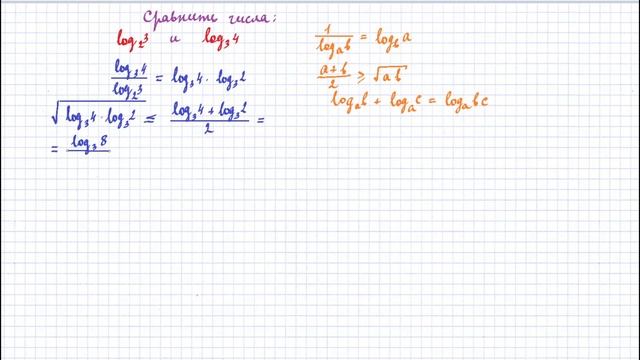 Сравнить числа:
log₂3 и log₃4
log₃4 / log₂3 = log₃4 · log₃2
√(log₃4 · log₃2) ≤ (log₃4 + log₃2) / 2 =
= log₃8 /
1 / logₐb = log_b a
(a+b) / 2 ≥ √(ab)
logₐb + logₐc = logₐbc